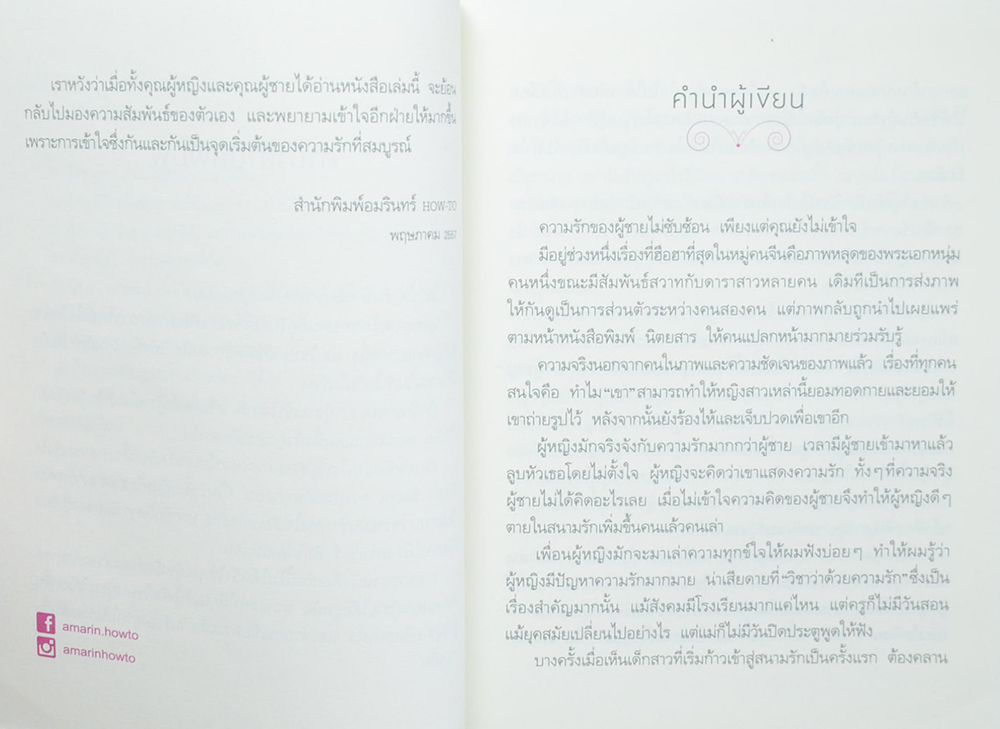 เราหวังว่าเมื่อทั้งคุณผู้หญิงและคุณผู้ชายได้อ่านหนังสือเล่มนี้ จะย้อน
กลับไปมองความสัมพันธ์ของตัวเอง และพยายามเข้าใจอีกฝ่ายให้มากขึ้น
เพราะการเข้าใจซึ่งกันและกันเป็นจุดเริ่มต้นของความรักที่สมบูรณ์
สำนักพิมพ์อมรินทร์ HOW-TO
พฤษภาคม 2557
amarin.howto
amarinhowto
คำนำผู้เขียน
ความรักของผู้ชายไม่ซับซ้อน เพียงแต่คุณยังไม่เข้าใจ
มีอยู่ช่วงหนึ่งเรื่องที่ฮือฮาที่สุดในหมู่คนจีนคือภาพหลุดของพระเอกหนุ่ม
คนหนึ่งขณะมีสัมพันธ์สวาทกับดาราสาวหลายคน เดิมทีเป็นการส่งภาพ
ให้กันดูเป็นการส่วนตัวระหว่างคนสองคน แต่ภาพกลับถูกนำไปเผยแพร่
ตามหน้าหนังสือพิมพ์ นิตยสาร ให้คนแปลกหน้ามากมายร่วมรับรู้
ความจริงนอกจากคนในภาพและความชัดเจนของภาพแล้ว เรื่องที่ทุกคน
สนใจคือ ทำไม "เขา" สามารถทำให้หญิงสาวเหล่านี้ยอมทอดกายและยอมให้
เขาถ่ายรูปไว้ หลังจากนั้นยังร้องไห้และเจ็บปวดเพื่อเขาอีก
ผู้หญิงมักจริงจังกับความรักมากกว่าผู้ชาย เวลามีผู้ชายเข้ามาหาแล้ว
ลูบหัวเธอโดยไม่ตั้งใจ ผู้หญิงจะคิดว่าเขาแสดงความรัก ทั้งๆ ที่ความจริง
ผู้ชายไม่ได้คิดอะไรเลย เมื่อไม่เข้าใจความคิดของผู้ชายจึงทำให้ผู้หญิงดีๆ
ตายในสนามรักเพิ่มขึ้นคนแล้วคนเล่า
เพื่อนผู้หญิงมักจะมาเล่าความทุกข์ใจให้ผมฟังบ่อยๆ ทำให้ผมรู้ว่า
ผู้หญิงมีปัญหาความรักมากมาย น่าเสียดายที่ "วิชาว่าด้วยความรัก" ซึ่งเป็น
เรื่องสำคัญมากนั้น แม้สังคมมีโรงเรียนมากแค่ไหน แต่ครูก็ไม่มีวันสอน
แม้ยุคสมัยเปลี่ยนไปอย่างไร แต่แม่ก็ไม่มีวันปิดประตูพูดให้ฟัง
บางครั้งเมื่อเห็นเด็กสาวที่เริ่มก้าวเข้าสู่สนามรักเป็นครั้งแรก ต้องคลาน